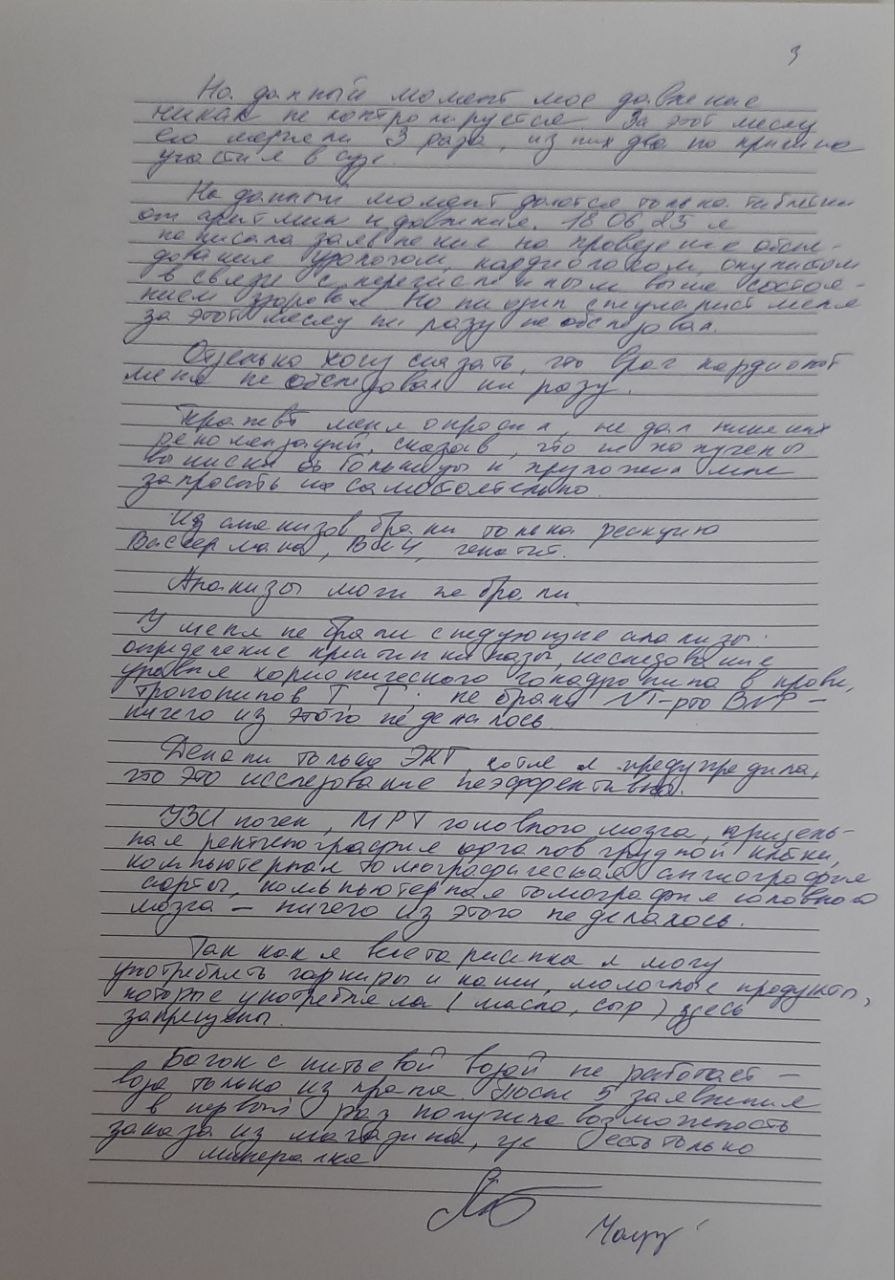 3
На данный момент мое давление
никак не контролируется. За этот месяц
его меряли 3 раза, из них два по причине
участия в суде.
На данный момент даются только таблетки
от аритмии и давления. 18.06.25 я
написала заявление на проведение обсле-
дования урологом, кардиологом, окулистом
в связи с перечисленным выше состоя-
нием здоровья. Но ни один специалист меня
за этот месяц ни разу не обследовал.
Отдельно хочу сказать, что врач кардиолог
меня не обследовал ни разу.
меня опросил, не дал никаких
рекомендаций, сказав, что не получены
выписки из больницы и предложил мне
запросить их самостоятельно.
Из анализов брали только реакцию
Вассермана, ВИЧ, гепатит.
Анализы мочи не брали.
У меня не брали следующие анализы:
определение креатинкиназы, исследование
уровня хорионического гонадотропина в крови,
тропонинов I, T; не брали NT-pro BNP –
ничего из этого не делалось.
Делали только ЭКГ, хотя я предупредила,
что это исследование неэффективно.
УЗИ почек, МРТ головного мозга, прицель-
ная рентгенография органов грудной клетки,
компьютерная томографическая ангиография
аорты, компьютерная томография головного
мозга – ничего из этого не делалось.
Так как я вегетарианка я могу
употреблять гарниры и каши, молочные продукты,
которые употребляла (масло, сыр) здесь
запрещены.
Бачок с питьевой водой не работает –
вода только из крана. После 5 заявления
в первый раз получила возможность
заказа из магазина, где есть только
минералка